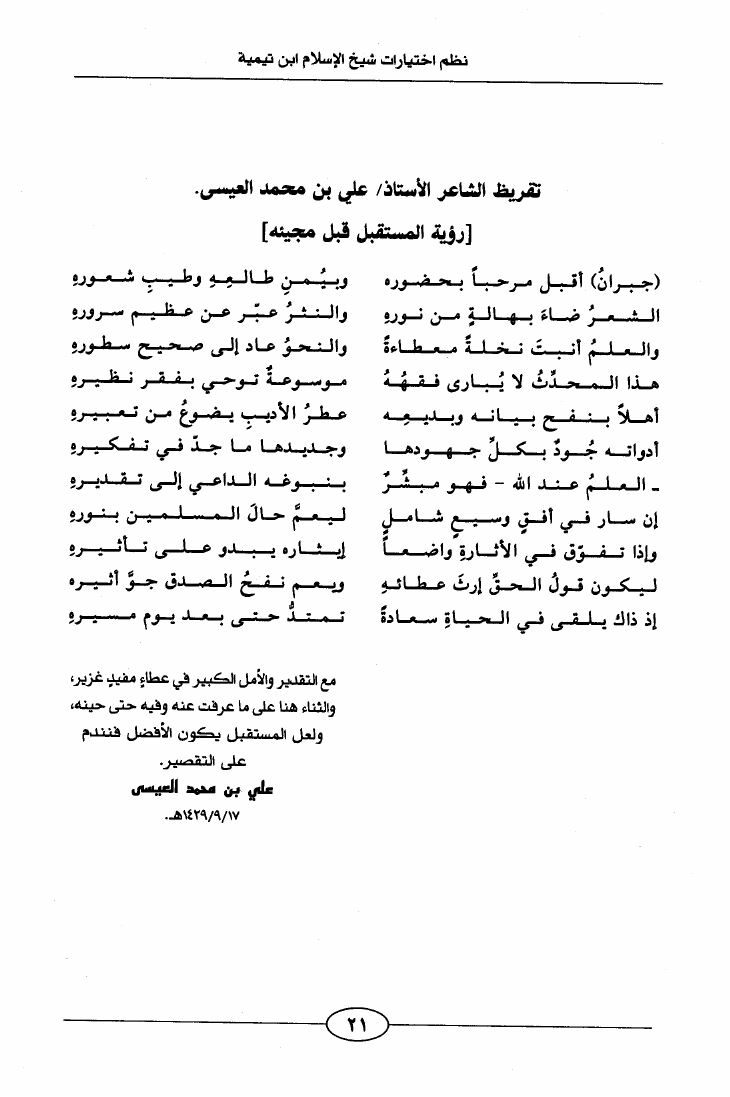 نظم اختيارات شيخ الإسلام ابن تيمية
تقريظ الشاعر الأستاذ/ علي بن محمد العيسى.
[رؤية المستقبل قبل مجيئه]
(جبرانُ) أقبل مرحباً بحضوره وبيُمنِ طالعِهِ وطيبِ شعورهِ
الشعرُ ضاءَ بهالةٍ من نورهِ والنثرُ عبّر عن عظيم سرورهِ
والعلمُ أنبتَ نخلةً معطاءةً والنحوُ عاد إلى صحيح سطورهِ
هذا المحدّثُ لا يُبارى فقهُهُ موسوعةٌ توحي بفقر نظيرهِ
أهلاً بنفح بيانه وبديعِه عطرُ الأديبِ يضوعُ من تعبيرهِ
أدواته جُودٌ بكلِّ جهودها وجديدها ما جدّ في تفكيرهِ
ـ العلمُ عند الله - فهو مبشِّرٌ بنبوغه الداعي إلى تقديرهِ
إن سار في أفقٍ وسيعٍ شاملٍ ليعمَّ حالَ المسلمين بنورهِ
وإذا تفوّق في الأثارةِ واضعاً إيثاره يبدو على تأثيرهِ
ليكون قولُ الحقِّ إرثَ عطائهِ ويعم نفحُ الصدق جوَّ أثيرهِ
إذ ذاك يلقى في الحياةِ سعادةً تمتدُّ حتى بعد يوم مسيرهِ
مع التقدير والأمل الكبير في عطاءٍ مفيدٍ غزير،
والثناء هنا على ما عرفت عنه وفيه حتى حينه،
ولعل المستقبل يكون الأفضل فنندم
على التقصير.
علي بن محمد العيسى
١٤٢٩/٩/١٧هـ.
٢١